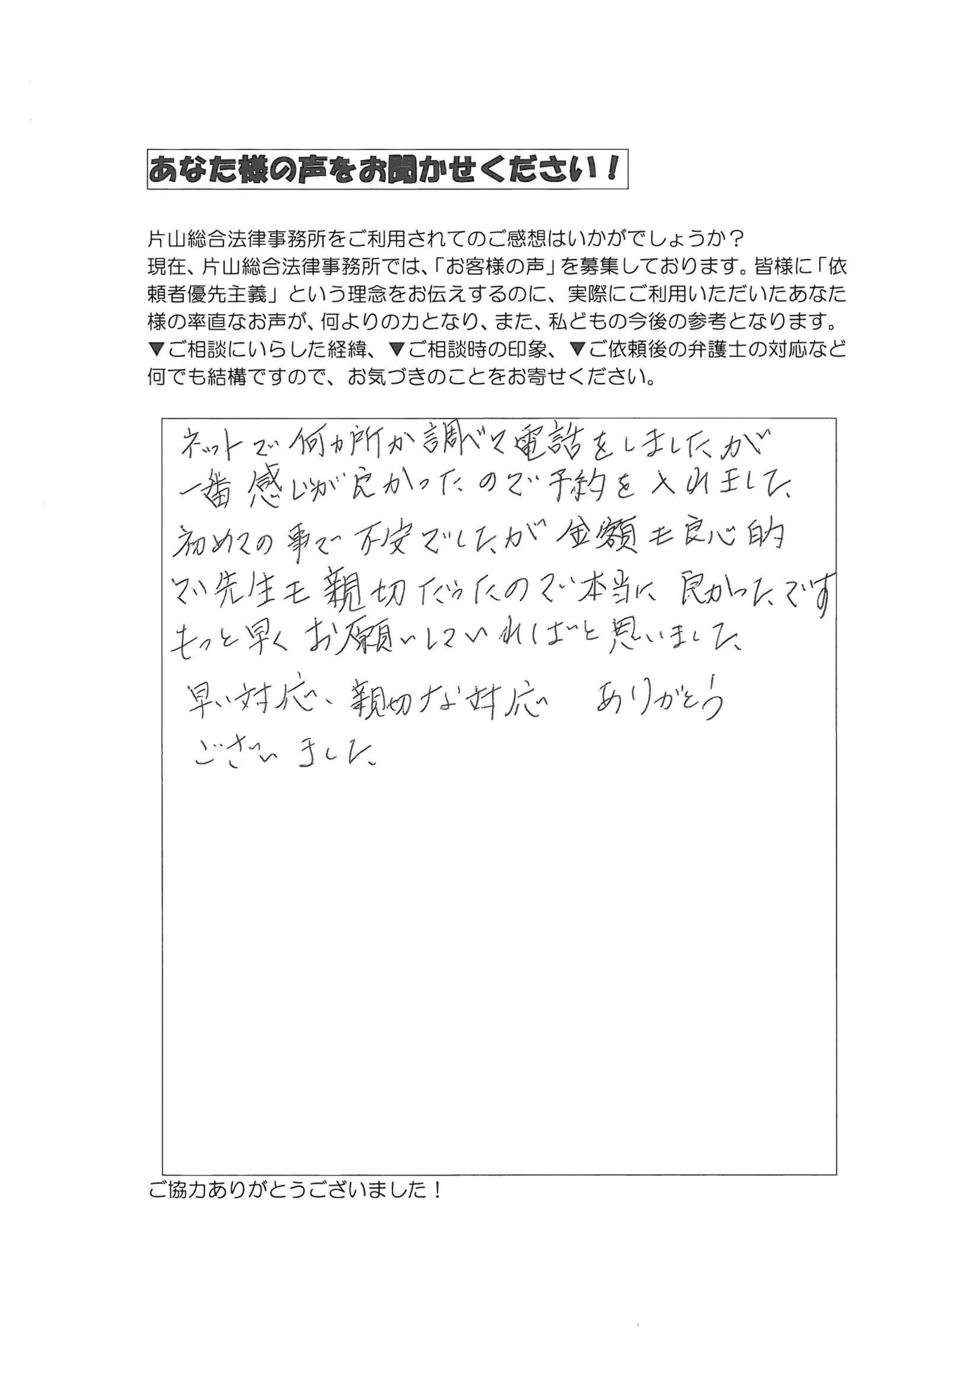 あなた様の声をお聞かせください！
片山総合法律事務所をご利用されてのご感想はいかがでしょうか？
現在、片山総合法律事務所では、「お客様の声」を募集しております。皆様に「依
頼者優先主義」という理念をお伝えするのに、実際にご利用いただいたあなた
様の率直なお声が、何よりの力となり、また、私どもの今後の参考となります。
▼ご相談にいらした経緯、▼ご相談時の印象、▼ご依頼後の弁護士の対応など
何でも結構ですので、お気づきのことをお寄せください。
ネットで何カ所か調べて電話をしましたが
一番感じが良かったので予約を入れました。
初めての事で不安でしたが金額も良心的
で先生も親切だったので本当に良かったです
もっと早くお願いしていればと思いました。
早い対応、親切な対応 ありがとう
ございました。
ご協力ありがとうございました！